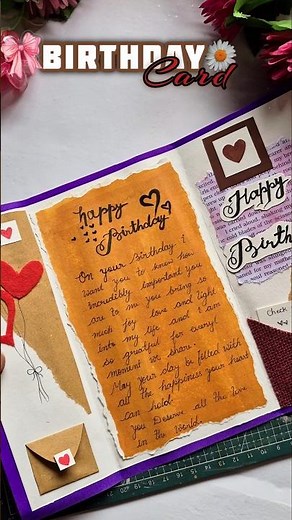 BIRTHDAY
Card
happy
Birthday
On your Birthday I
want you to know how
incredibly important you
are to me you bring so
much joy love and light
into my life and I am
so grateful for every
moment we share.
May your day be filled with
all the happiness your heart
can hold.
you Deserve all the love
In the World.
Happy
Birth
Check